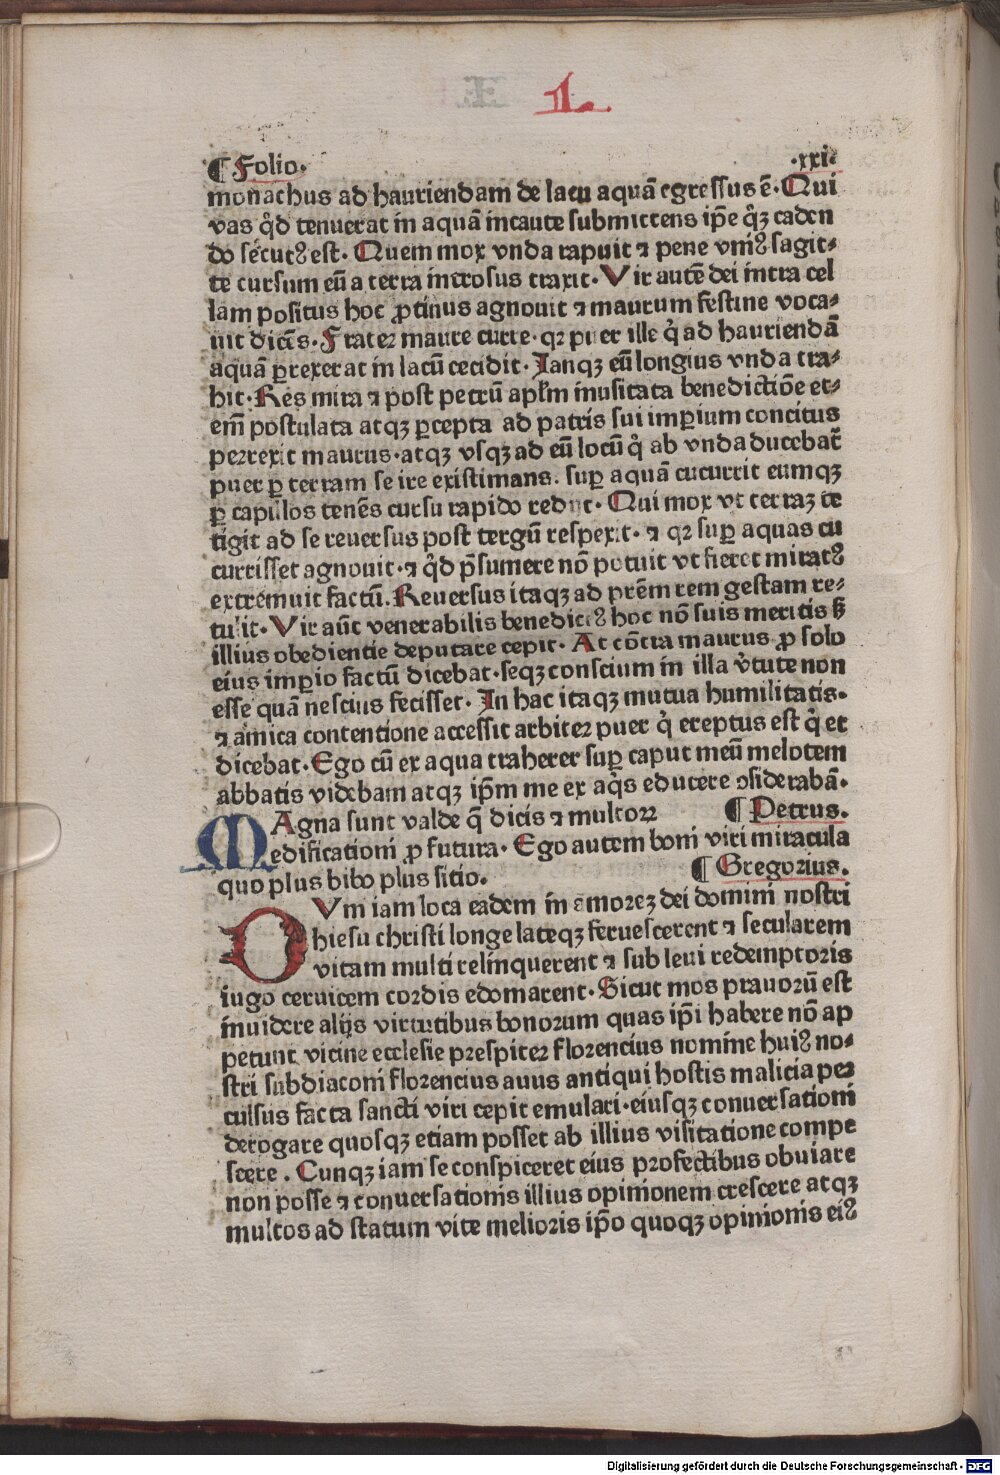 1
¶ Folio. .xxi.
monachus ad hauriendam de lacu aquā egressus ē. Qui
vas q̇d tenuerat in aquā incaute submittens ip̄e q̇ꝫ caden
do secutꝰ est. Quem mox vnda rapuit ⁊ pene vniꝰ sagit⸗
te cursum eū a terra introsus traxit. Vir autē dei intra cel
lam positus hoc ꝓtinus agnouit ⁊ maurum festine voca⸗
uit dicēs. Frater maure curre. qꝛ puer ille q̇ ad hauriendā
aquā ꝑrexerat in lacū cecidit. Ianqꝫ eū longius vnda tra⸗
hit. Res mira ⁊ post petrū apl̄m inusitata benedictiōe et⸗
em̄ postulata atqꝫ ꝑcepta ad patris sui imꝑium concitus
perrexit maurus. atqꝫ vsqꝫ ad eū locū q̇ ab vnda ducebat̄
puer ꝑ terram se ire existimans. suꝑ aquā cucurrit eumqꝫ
ꝑ capillos tenēs cursu rapido redijt. Qui mox vt terraꝫ te
tigit ad se reuersus post tergū respexit. ⁊ qꝛ suꝑ aquas cu
currisset agnouit. ⁊ q̇d p̄sumere nō potuit vt fieret miratꝰ
extremuit factū. Reuersus itaqꝫ ad pr̄em rem gestam re⸗
tulit. Vir aūt venerabilis benedictꝰ hoc nō suis meritis sꝫ
illius obedientie deputare cepit. At cōtra maurus ꝓ solo
eius imꝑio factū dicebat. seqꝫ conscium in illa v̇tute non
esse quā nescius fecisset. In hac itaqꝫ mutua humilitatis.
⁊ amica contentione accessit arbiter puer q̇ ereptus est q̇ et
dicebat. Ego cū ex aqua traherer suꝑ caput meū melotem
abbatis videbam atqꝫ ip̄m me ex aq̇s educere ꝯsiderabā.
MAgna sunt valde q̄ dicis ⁊ multoꝝ ¶ Petrus.
edificationi ꝓ futura. Ego autem boni viri miracula
quo plus bibo plus sitio. ¶ Gregorius.
Vm iam loca eadem in amoreꝫ dei domini nostri
hiesu christi longe lateqꝫ feruescerent ⁊ secularem
vitam multi relinquerent ⁊ sub leui redemptoris
iugo ceruicem cordis edomarent. Sicut mos prauorū est
inuidere alijs virtutibus bonorum quas ip̄i habere nō ap
petunt vicine ecclesie prespiter florencius nomine huiꝰ no⸗
stri subdiaconi florencius auus antiqui hostis malicia per
culsus facta sancti viri cepit emulari. eiusqꝫ conuersationi
derogare quosqꝫ etiam posset ab illius visitatione compe
scere. Cunqꝫ iam se conspiceret eius profectibus obuiare
non posse ⁊ conuersationis illius opinionem crescere atqꝫ
multos ad statum vite melioris ip̄o quoqꝫ opinionis eiꝰ
Digitalisierung gefördert durch die Deutsche Forschungsgemeinschaft - DFG